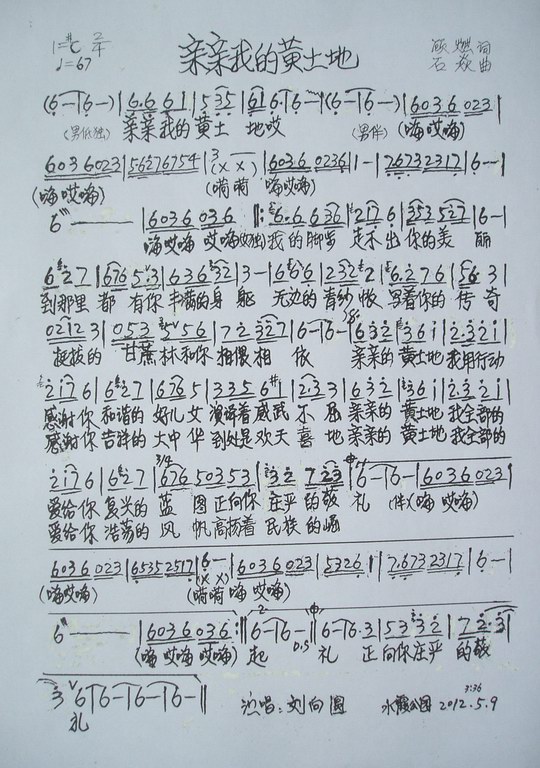 亲亲我的黄土地
1=#C 2/4
♩=67
顾燃词
石焱曲
(6-16-)|6.6 61|5 35|61 6.16-|(6-16-)|6036 023|
(男低独) 亲亲我的黄土 地哎 (男伴) (嗨哎嗨)
6036 023|56276754|3(X X)|6036 0236|1-|7.6732317|6-|
(嗨哎嗨) (嗬嗬 嗨哎嗨)
6-|6036 036|:6.6 636|217 6|353 527|6-|
嗨哎嗨 哎嗨 我的脚步 走不出 你的美 丽
6 27|676 5 3|636 32|3-|6 66|232 2|6.276|56 3|
到那里 都 有你 丰满的身 躯 无边的青纱 帐 写着你的 传 奇
0212 3|053 556|72 327|6-|6-|632|36i|2.32i|
挺拔的 甘蔗林和你 相偎相 依 亲亲的 黄土地 我用行动
2i76|627|676 5|335 6|2.3 3|632|36i|2.32i|
感谢你 和谐的 好儿女 演译着威武 不 屈 亲亲的 黄土地 我全部的
感谢你 吉祥的 大中华 到处是欢天 喜 地 亲亲的 黄土地 我全部的
2i76|627|676 5 0353|32 723|6-|6-|6036 023|
爱给你 复兴的 蓝 图 正向你 庄严 的敬 礼 (伴)(嗨 哎嗨)
爱给你 浩荡的 风 帆 高扬着 民族 的崛
6036 023|65352517|6-(X X)|6036 023|5326|7.6732317|6-|
(嗨哎嗨) (嗬嗬 嗨哎嗨)
6-|6036 036:|6-|6-|6-|6.3|5332|72.3|
(嗨 哎嗨 哎嗨) 起 D.S 礼 正向你庄严 的敬
3 6-|6-|6-|6-||
礼 演唱:刘向圆 水霞公园 2012.5.9
3:36